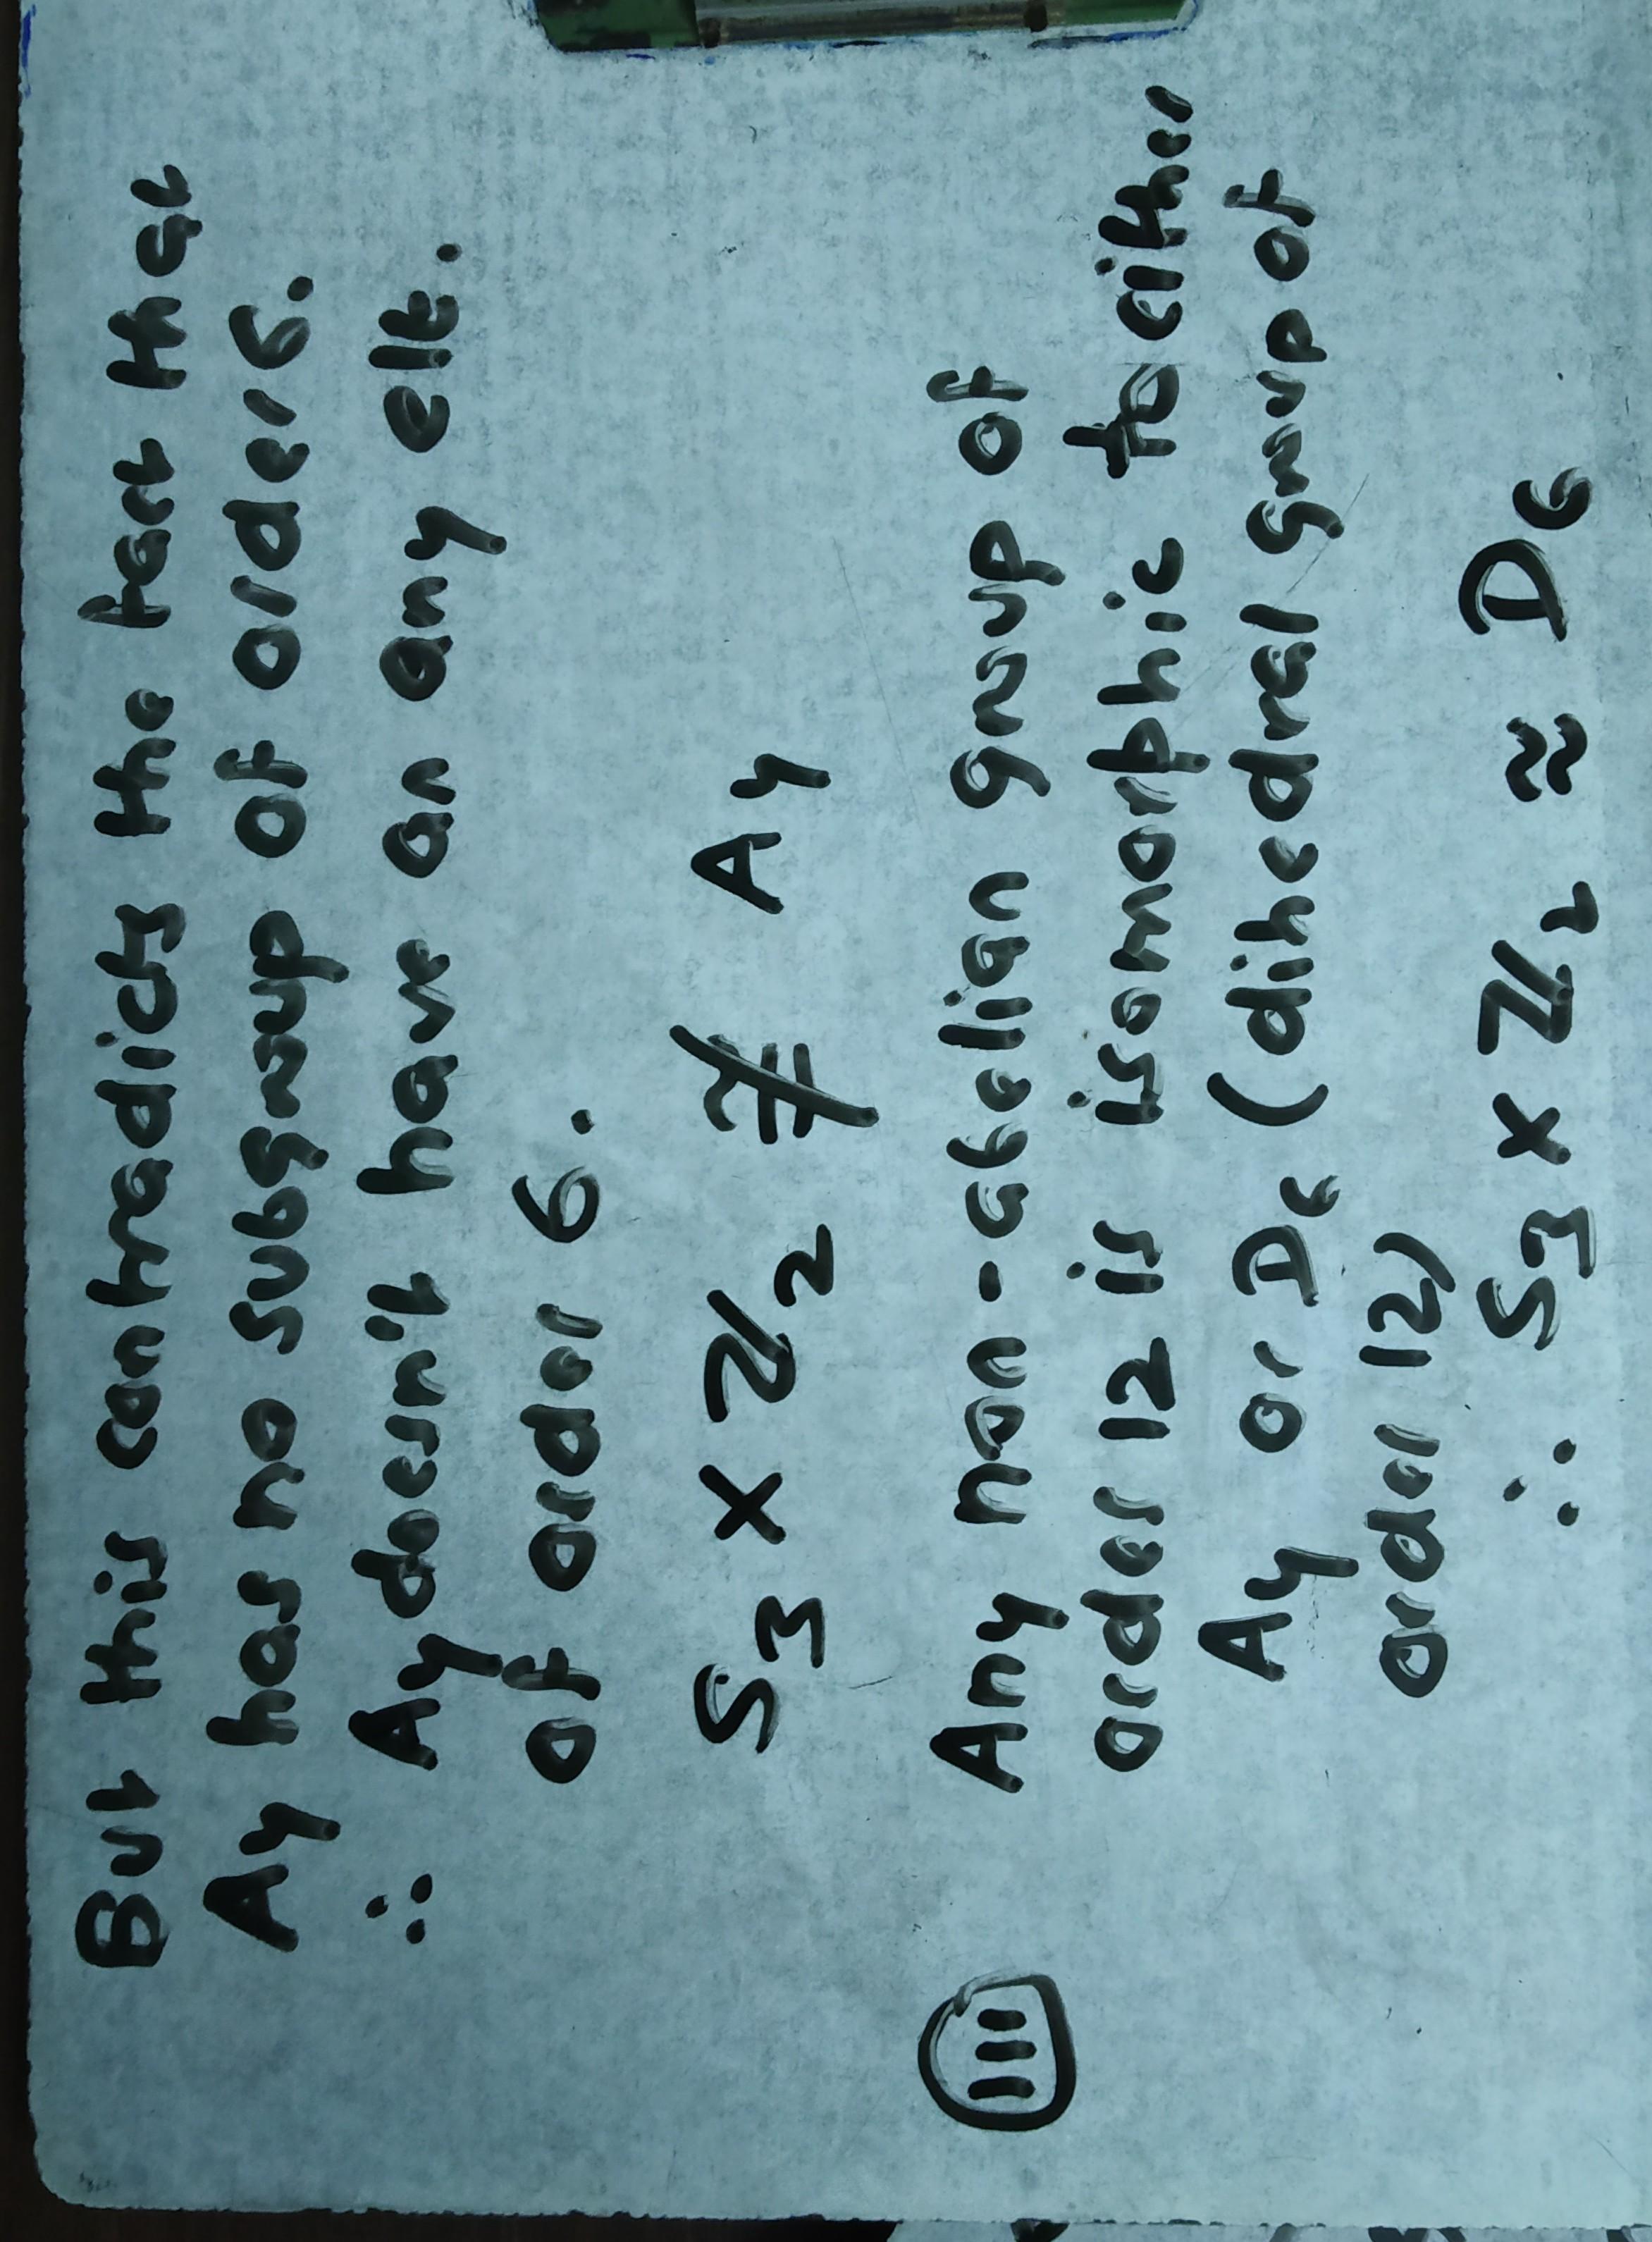 But this contradicts the fact that
A4 has no subgroup of order 6.
∴ A4 doesn't have an any elt.
of order 6.
S3 × ℤ2 ≇ A4
(III) Any non-abelian group of
order 12 is isomorphic to either
A4 or D6 (dihedral group of
order 12)
∴ S3 × ℤ2 ≈ D6